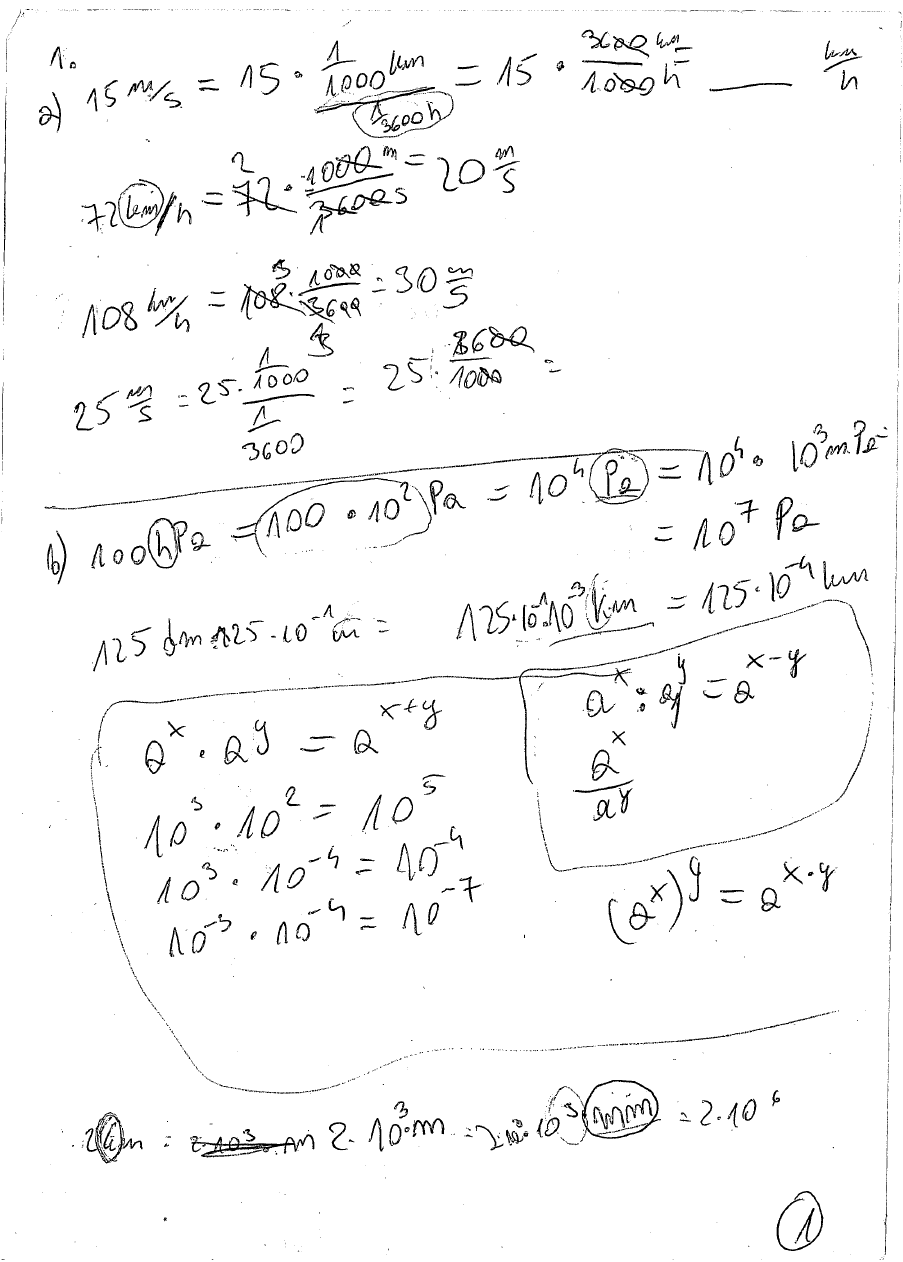 1.
a) 15 m/s = 15 · (1/1000 km)/(1/3600 h) = 15 · 3600 km/1000 h = ____ km/h
72 km/h = 72 · 1000 m/3600 s = 20 m/s
2
1
108 km/h = 108 · 1000/3600 = 30 m/s
3
25 m/s = 25 · (1/1000)/(1/3600) = 25 · 3600/1000 =
b) 100 hPa = 100 · 10² Pa = 10⁴ Pa = 10⁴ · 10³ mPa =
= 10⁷ Pa
125 dm = 125 · 10⁻¹ m = 125 · 10⁻¹ · 10⁻³ km = 125 · 10⁻⁴ km
aˣ · aʸ = aˣ⁺ʸ
10³ · 10² = 10⁵
10³ · 10⁻⁴ = 10⁻⁴
10⁻³ · 10⁻⁴ = 10⁻⁷
aˣ : aʸ = aˣ⁻ʸ
aˣ/aʸ
(aˣ)ʸ = aˣ·ʸ
2 km = 2·10³ m 2 · 10³ m = 2·10³·10³ mm = 2·10⁶
1